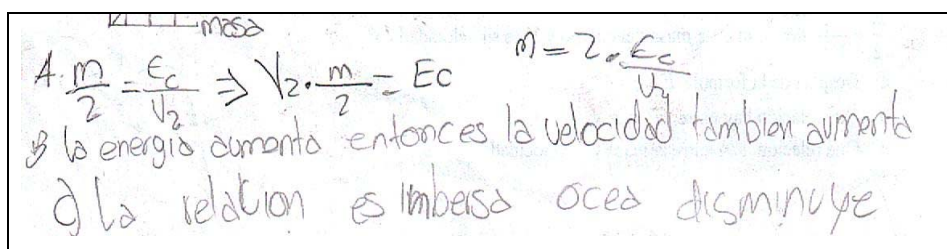 masa
A. m/2 = Ec/V2 ⇒ V2 . m/2 = Ec m = 2 . Ec/V2
B la energia aumenta entonces la velocidad tambien aumenta
c) La relacion es imbersa ocea disminuye